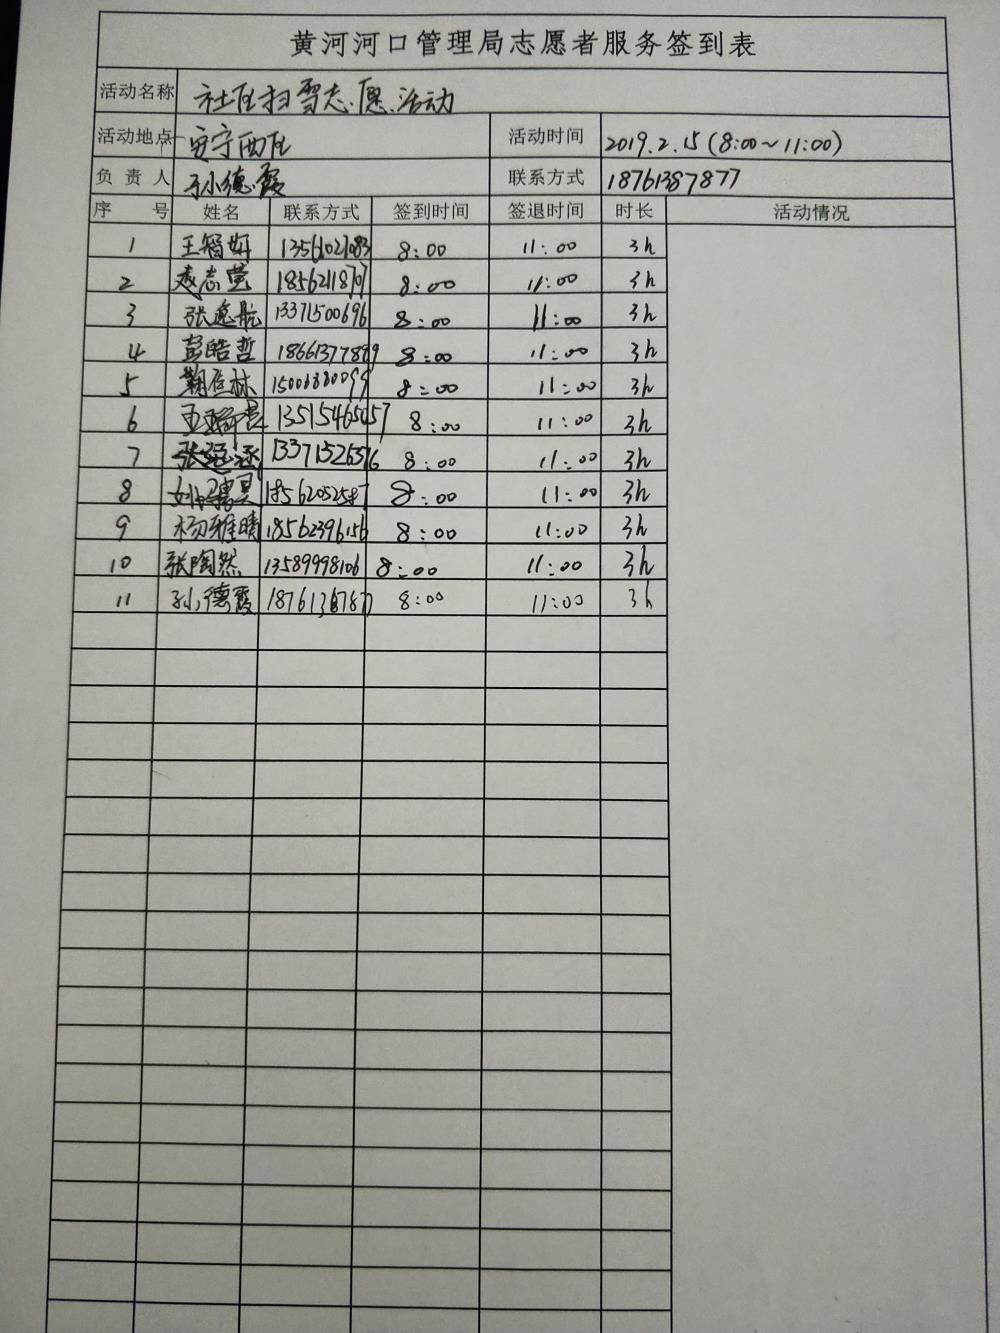 黄河河口管理局志愿者服务签到表
活动名称 社区扫雪志愿活动
活动地点 安宁西区 活动时间 2019.2.15(8:00~11:00)
负责人 孙德霞 联系方式 18761387877
序号 姓名 联系方式 签到时间 签退时间 时长 活动情况
1 王智妍 13561021083 8:00 11:00 3h
2 志莹 18562118707 8:00 11:00 3h
3 张逸航 13371500696 8:00 11:00 3h
4 彭皓哲 18661377899 8:00 11:00 3h
5 8:00 11:00 3h
6 13515465057 8:00 11:00 3h
7 张涵 8:00 11:00 3h
8 18562052587 8:00 11:00 3h
9 杨雅晴 18562396156 8:00 11:00 3h
10 张陶然 13589998106 8:00 11:00 3h
11 孙德霞 8:00 11:00 3h